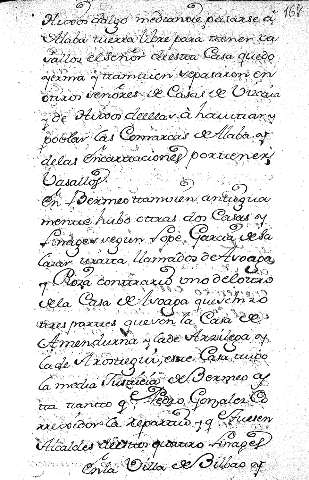 168
Hixos dalgo mediante pasarse a
Alaba tierra libre para tener ba
sallos el señor de esta Casa quedo
yerma y tamvien se pasaron en
otros señores de Casas de Vizcaia
de Hixos de ellas à havitar y
poblar las Comarcas de Alaba y
de las Encartaciones por tener
Vasallos.
En Bermeo tamvien antigua
mente hubo otras dos Casas y
Linages segun Lope Garcia de Sa
lazar llamados de Aroapa
y Roza contrario uno del otro
de la Casa de Aroapa
tres partes que son la Casa de
Amenduna y la de Arxilega y
la de Arostegui, esta Casa tubo
la media Justicia de Bermeo y
tanto q.e Pedro Gonzalez Co
rrexidor la repartio y q.e fuesen
Alcaldes de estos quatro Linages
En la Villa de Bilbao y